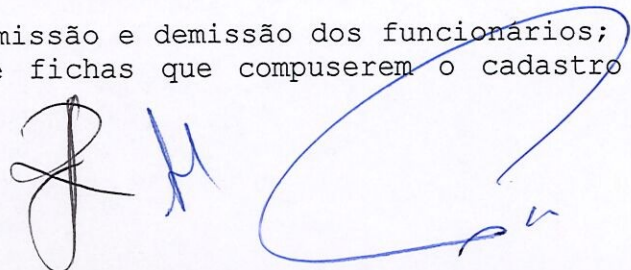 missão e demissão dos funcionários;
e fichas que compuserem o cadastro